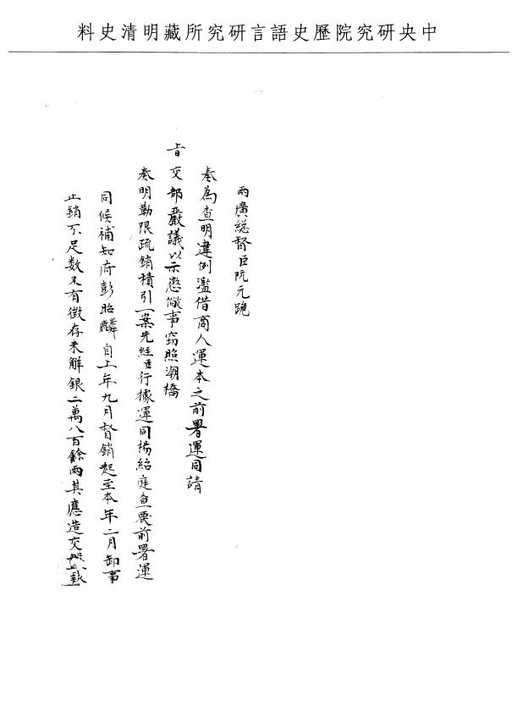 中央研究院歷史語言研究所藏明清史料
兩廣總督臣阮元跪
奏為查明違例濫借商人運本之前署運同請
旨交部嚴議以示懲儆事竊照潮橋
奏明勒限疏銷積引一案先經臣行據運同楊紹庭查覆前署運
同候補知府彭昭麟自上年九月督銷起至本年二月卸事
止銷不足数又有徵存未解銀二萬八百餘兩其應造交